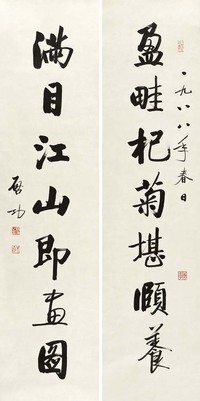 盈畦杞菊堪頤養
一九八八年春日
满目江山即画圖
啓功